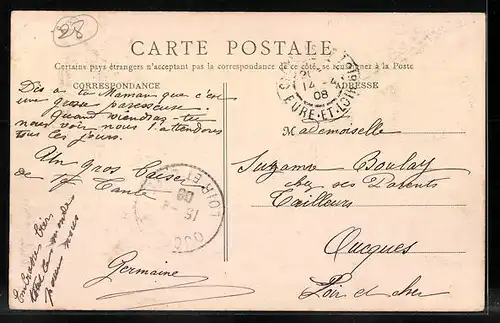 28
CARTE POSTALE
Certains pays étrangers n'acceptant pas la correspondance de ce côté, se renseigner à la Poste
CORRESPONDANCE
ADRESSE
14-4
08
EURE-ET-LOIR
Dis à ta Maman que c'est
une grosse paresseuse.
Quand viendras-tu
nous voir nous t'attendons
tous les jours.
Un gros Baiser
de ta Tante
Germaine
Embrasses bien
tout le monde
pour nous
LOIR-ET
15-4
08
Mademoiselle
Suzanne Boulay
chez ses Parents
Tailleurs
Oucques
Loir et cher